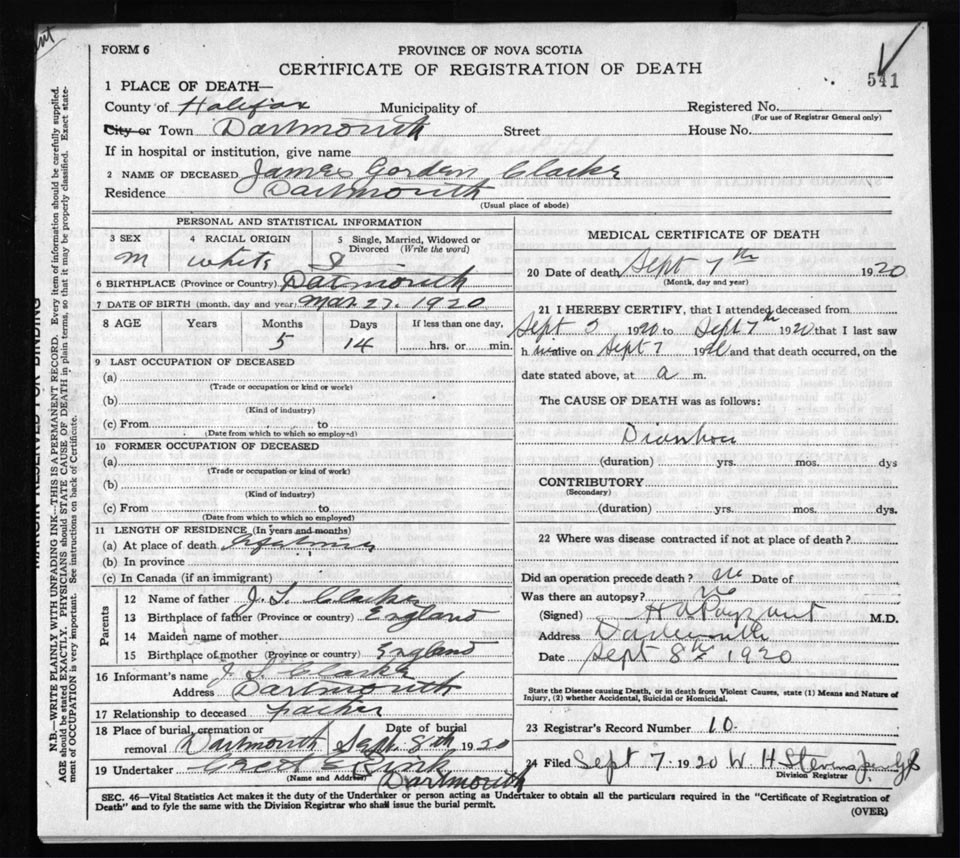 FORM 6
PROVINCE OF NOVA SCOTIA
CERTIFICATE OF REGISTRATION OF DEATH
541
1 PLACE OF DEATH—
County of Halifax Municipality of Registered No.
(For use of Registrar General only)
City or Town Dartmouth Street House No.
If in hospital or institution, give name
2 NAME OF DECEASED James Gorden Clarke
Residence Dartmouth
(Usual place of abode)
PERSONAL AND STATISTICAL INFORMATION
3 SEX 4 RACIAL ORIGIN 5 Single, Married, Widowed or Divorced (Write the word)
M White S
6 BIRTHPLACE (Province or Country) Datmouth
7 DATE OF BIRTH (month, day and year) Mar. 27. 1920
8 AGE Years Months Days If less than one day,
5 14 hrs. or min.
9 LAST OCCUPATION OF DECEASED
(a)
(Trade or occupation or kind or work)
(b)
(Kind of industry)
(c) From to
(Date from which to which so employed)
10 FORMER OCCUPATION OF DECEASED
(a)
(Trade or occupation or kind of work)
(b)
(Kind of industry)
(c) From to
(Date from which to which so employed)
11 LENGTH OF RESIDENCE (In years and months)
(a) At place of death
(b) In province
(c) In Canada (if an immigrant)
Parents
12 Name of father Clarke
13 Birthplace of father (Province or country) England
14 Maiden name of mother
15 Birthplace of mother (Province or country) England
16 Informant's name Clarke
Address Dartmouth
17 Relationship to deceased father
18 Place of burial, cremation or removal Dartmouth Date of burial Sept. 8th 1920
19 Undertaker
(Name and Address) Dartmouth
MEDICAL CERTIFICATE OF DEATH
20 Date of death Sept 7th 1920
(Month, day and year)
21 I HEREBY CERTIFY, that I attended deceased from
Sept 5 1920 to Sept 7th 1920 that I last saw
h alive on Sept 7 19 and that death occurred, on the
date stated above, at a m.
The CAUSE OF DEATH was as follows:
Diarrhoea
(duration) yrs. mos. dys
CONTRIBUTORY
(Secondary)
(duration) yrs. mos. dys.
22 Where was disease contracted if not at place of death?
Did an operation precede death? no Date of
Was there an autopsy? no
(Signed) H A Payzant M.D.
Address Dartmouth
Date Sept 8th 1920
State the Disease causing Death, or in death from Violent Causes, state (1) Means and Nature of
Injury, (2) whether Accidental, Suicidal or Homicidal.
23 Registrar's Record Number 10
24 Filed Sept 7 1920 W. H.
Division Registrar
SEC. 46—Vital Statistics Act makes it the duty of the Undertaker or person acting as Undertaker to obtain all the particulars required in the "Certificate of Registration of
Death" and to fyle the same with the Division Registrar who shall issue the burial permit.
(OVER)
MARGIN RESERVED FOR BINDING
N.B.—WRITE PLAINLY WITH UNFADING INK—THIS IS A PERMANENT RECORD. Every item of information should be carefully supplied.
AGE should be stated EXACTLY. PHYSICIANS should STATE CAUSE OF DEATH in plain terms, so that it may be properly classified. Exact state-
ment of OCCUPATION is very important. See instructions on back of Certificate.